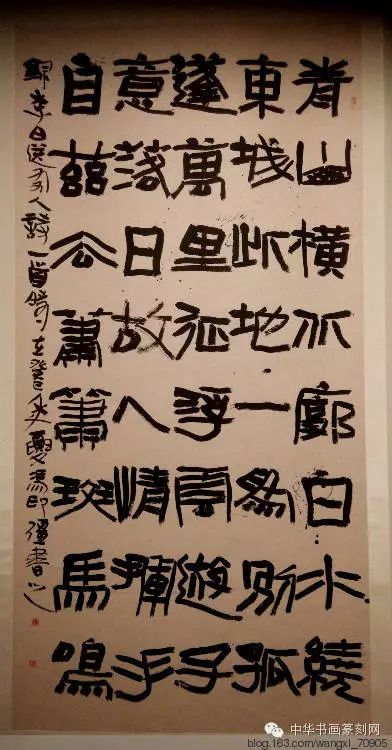 青山橫北郭白水繞
東城此地一為別孤
蓬萬里征浮雲遊子
意落日故人情揮手
自茲去蕭蕭班馬鳴
錄李白送友人詩一首時在馬印強書之
中华书画篆刻网
blog.163.com/wangxl_70905